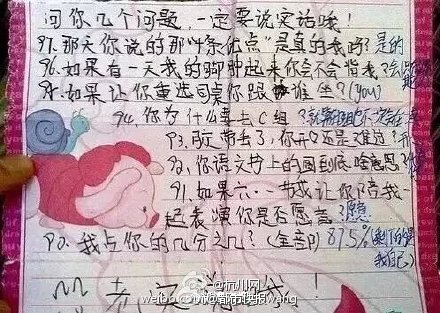 问你几个问题,一定要说实话哦!
97.那天你说的那"十条优点"是真的我吗?是的
96.如果有一天我的脚肿起来你会不会背我?会
95.如果让你重选同桌你跟谁坐?(you)
94.你为什么要去C组?
93.我走了,你开心还是难过?
92.你语文书上的画到底啥意思?
91.如果六·一节我让你陪我一
起表演你是否愿意?愿意
90.我占你的几分之几?(全部)87.5%剩下的是
我自己
一定
!
@杭州网
weibo.com
@都市快报wang